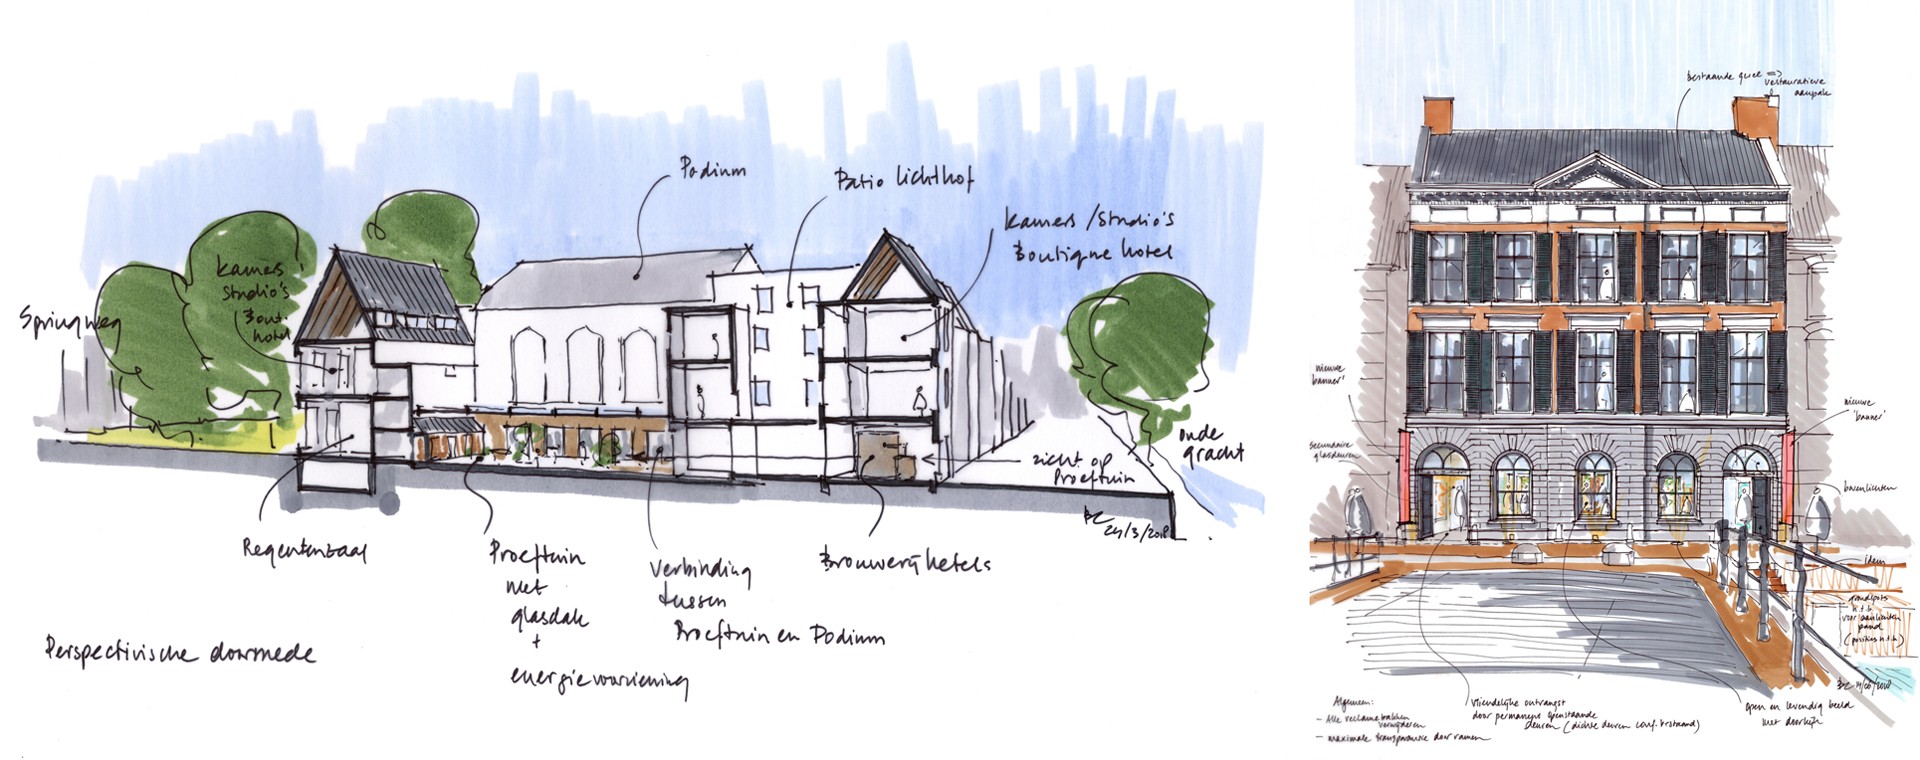 Podium
Patio lichthof
Kamers / Studio's
Boutique hotel
Kamers
Studio's
Bout.
hotel
Springweg
oude
gracht
zicht op
Proeftuin
BZ
24/3/2018
Regentenzaal
Proeftuin
met
glasdak
+
energievoorziening
Verbinding
tussen
Proeftuin en Podium
Brouwerijketels
Perspectivische doorsnede
bestaande gevel =>
restauratieve
aanpak
nieuwe
'banner'
secundaire
glasdeuren
nieuwe
'banner'
bovenlichten
idem
grondspots
n.t.b.
voor aanlichten
pand
(posities n.t.b.)
open en levendig beeld
met doorkijk
Algemeen:
- Alle reclamebakken
verwijderen
- maximale transparantie door ramen
vriendelijke ontvangst
door permanent openstaande
deuren (dichte deuren conf. bestaand)